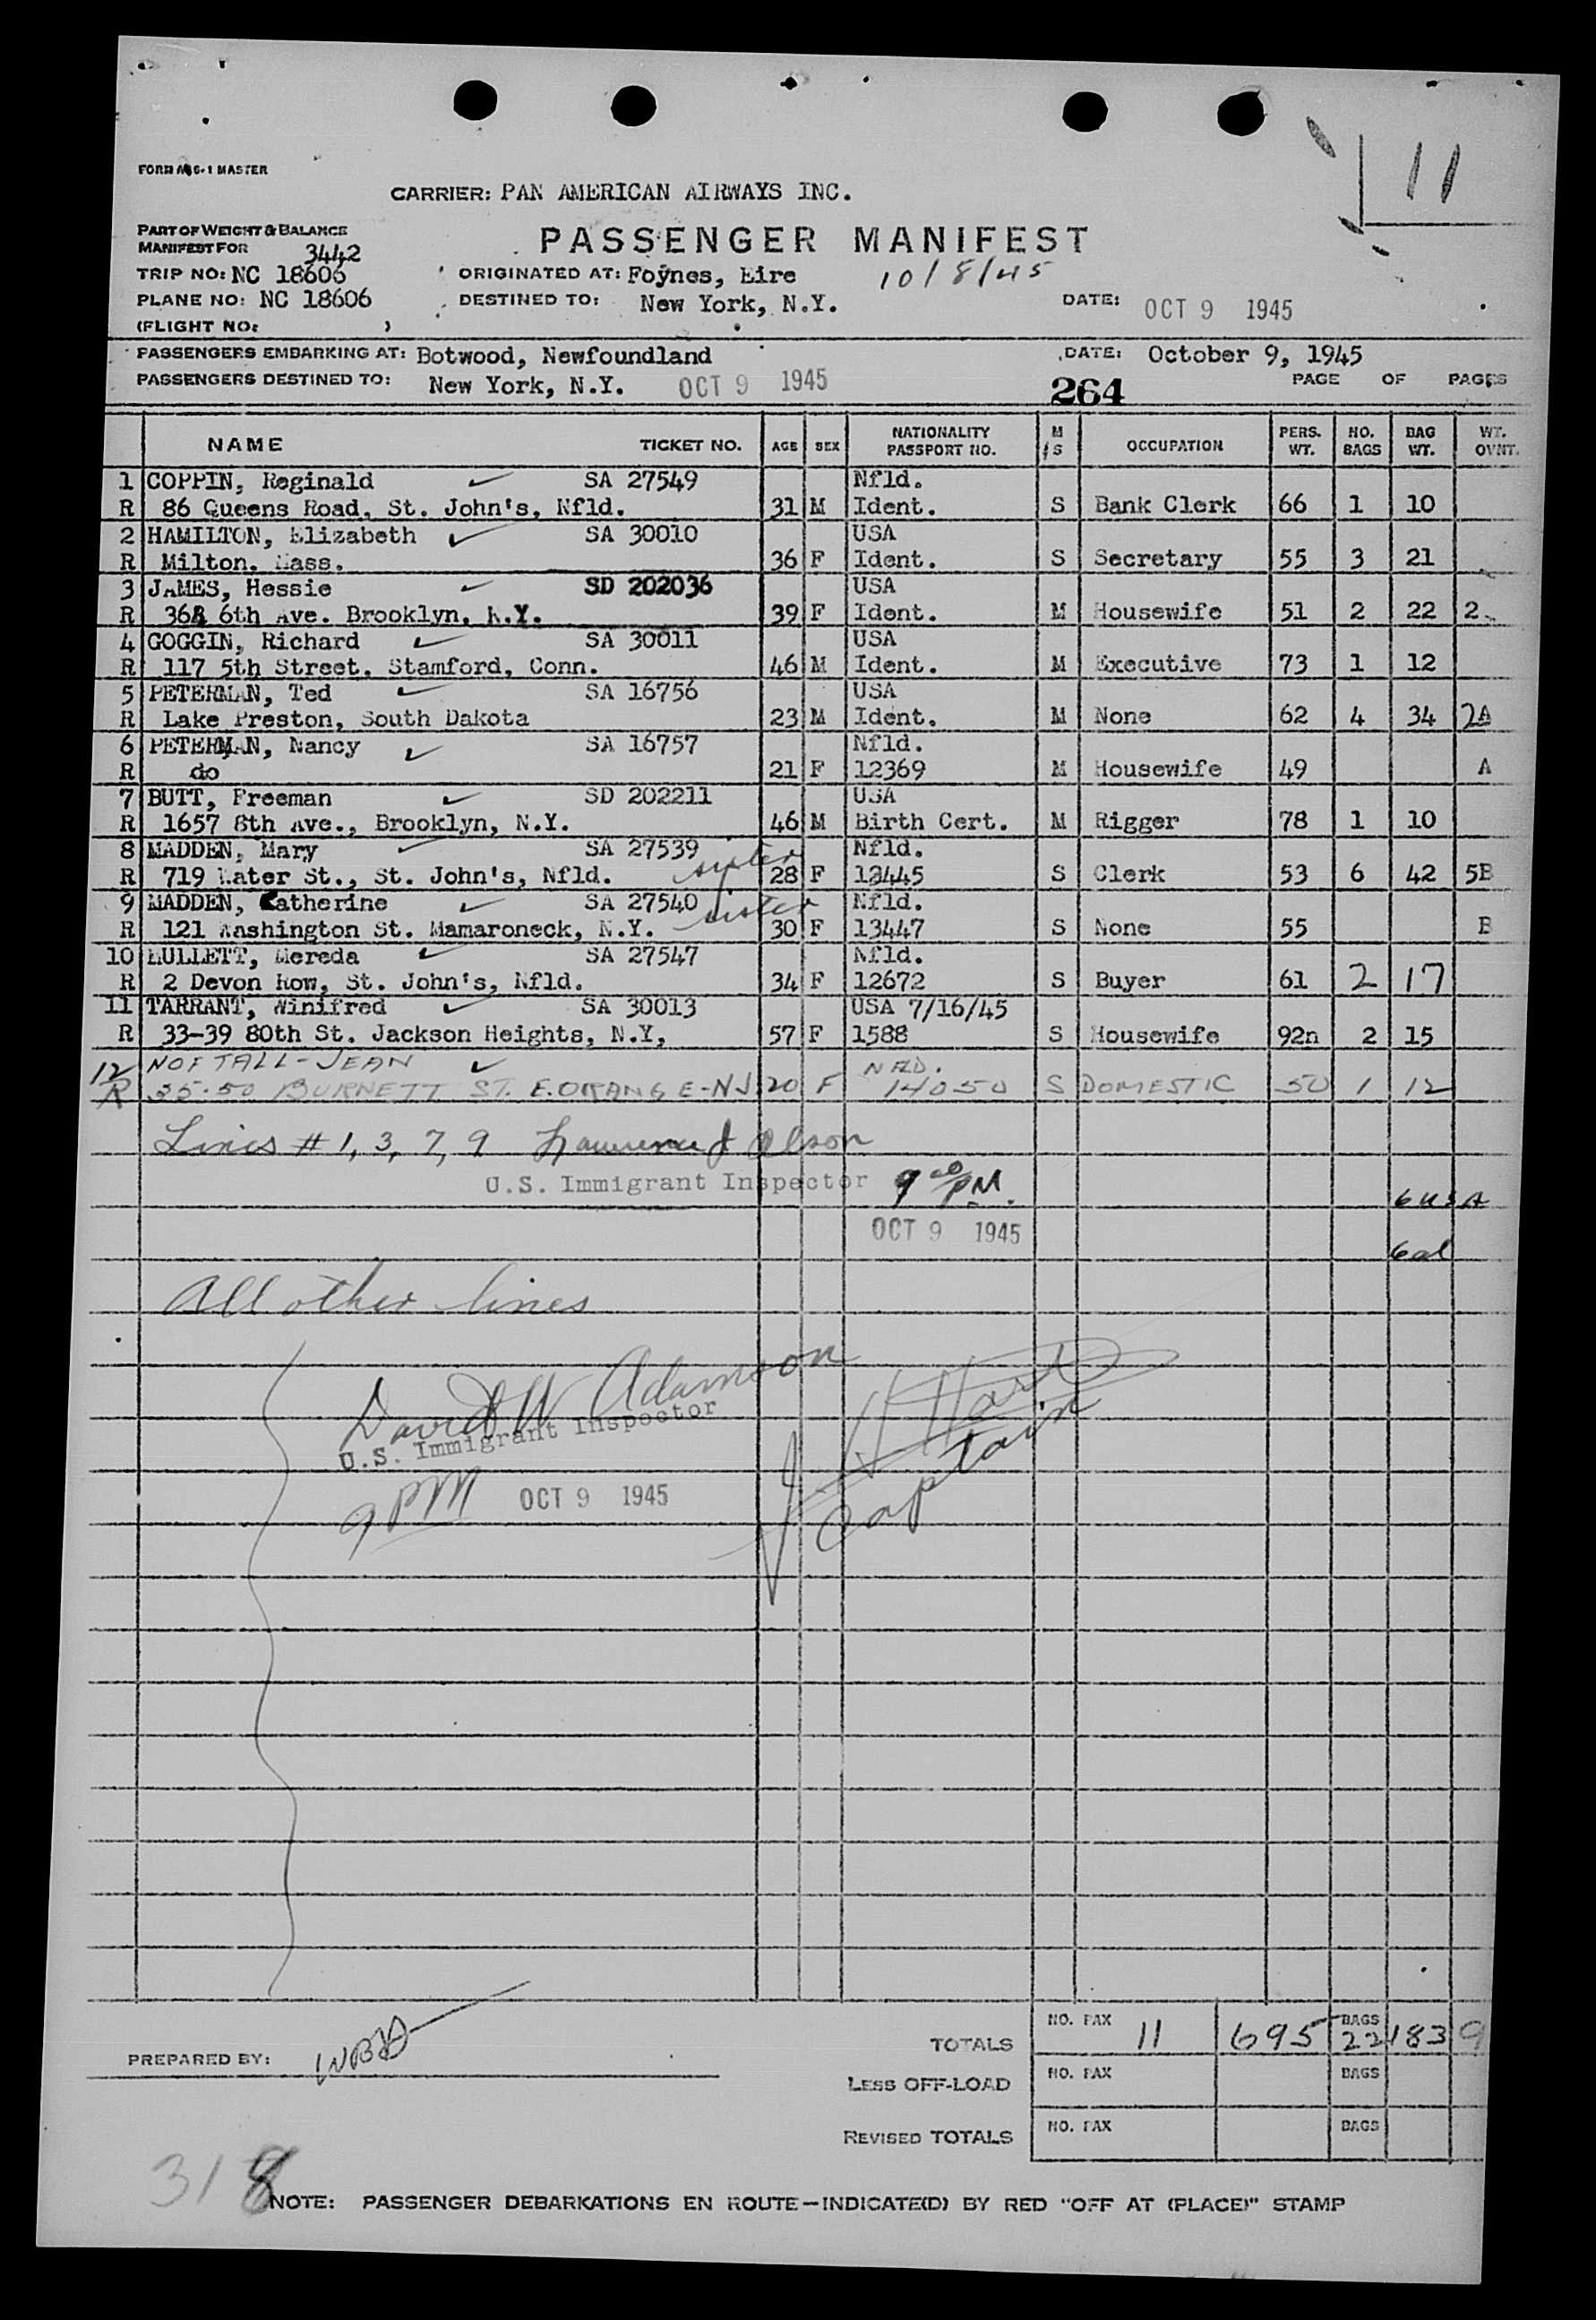 11
FORM A G-1 MASTER
CARRIER: PAN AMERICAN AIRWAYS INC.
PART OF WEIGHT & BALANCE
MANIFEST FOR 3442
PASSENGER MANIFEST
TRIP NO: NC 18606 ORIGINATED AT: Foynes, Eire 10/8/45
PLANE NO: NC 18606 DESTINED TO: New York, N.Y. DATE: OCT 9 1945
(FLIGHT NO: )
PASSENGERS EMBARKING AT: Botwood, Newfoundland DATE: October 9, 1945
PASSENGERS DESTINED TO: New York, N.Y. OCT 9 1945 264 PAGE OF PAGES
NAME TICKET NO. AGE SEX NATIONALITY PASSPORT NO. M/S OCCUPATION PERS. WT. NO. BAGS BAG WT. WT. OVNT.
1 COPPIN, Reginald SA 27549 Nfld.
R 86 Queens Road, St. John's, Nfld. 31 M Ident. S Bank Clerk 66 1 10
2 HAMILTON, Elizabeth SA 30010 USA
R Milton, Mass. 36 F Ident. S Secretary 55 3 21
3 JAMES, Hessie SD 202036 USA
R 368 6th Ave. Brooklyn, N.Y. 39 F Ident. M Housewife 51 2 22 2
4 GOGGIN, Richard SA 30011 USA
R 117 5th Street, Stamford, Conn. 46 M Ident. M Executive 73 1 12
5 PETERMAN, Ted SA 16756 USA
R Lake Preston, South Dakota 23 M Ident. M None 62 4 34 2A
6 PETERMAN, Nancy SA 16757 Nfld.
R do 21 F 12369 M Housewife 49 A
7 BUTT, Freeman SD 202211 USA
R 1657 8th Ave., Brooklyn, N.Y. 46 M Birth Cert. M Rigger 78 1 10
8 MADDEN, Mary SA 27539 Nfld.
R 719 Water St., St. John's, Nfld. sister 28 F 13445 S Clerk 53 6 42 5B
9 MADDEN, Catherine SA 27540 Nfld.
R 121 Washington St. Mamaroneck, N.Y. sister 30 F 13447 S None 55 B
10 MULLETT, Mereda SA 27547 Nfld.
R 2 Devon Row, St. John's, Nfld. 34 F 12672 S Buyer 61 2 17
11 TARRANT, Winifred SA 30013 USA 7/16/45
R 33-39 80th St. Jackson Heights, N.Y, 57 F 1588 S Housewife 92n 2 15
12 NOFTALL-JEAN NFLD.
R 35-50 BURNETT ST. E. ORANGE-NJ 20 F 14050 S DOMESTIC 50 1 12
Lines # 1, 3, 7, 9 Lawrence J Olson
U.S. Immigrant Inspector 9 00 PM.
6 USA
OCT 9 1945
6 al
All other lines
David W Adamson
U.S. Immigrant Inspector
J H Hart
Captain
9 PM OCT 9 1945
TOTALS NO. PAX 11 695 BAGS 22 183 9
PREPARED BY: WBD
LESS OFF-LOAD NO. PAX BAGS
REVISED TOTALS NO. PAX BAGS
318
NOTE: PASSENGER DEBARKATIONS EN ROUTE—INDICATE(D) BY RED "OFF AT (PLACE)" STAMP